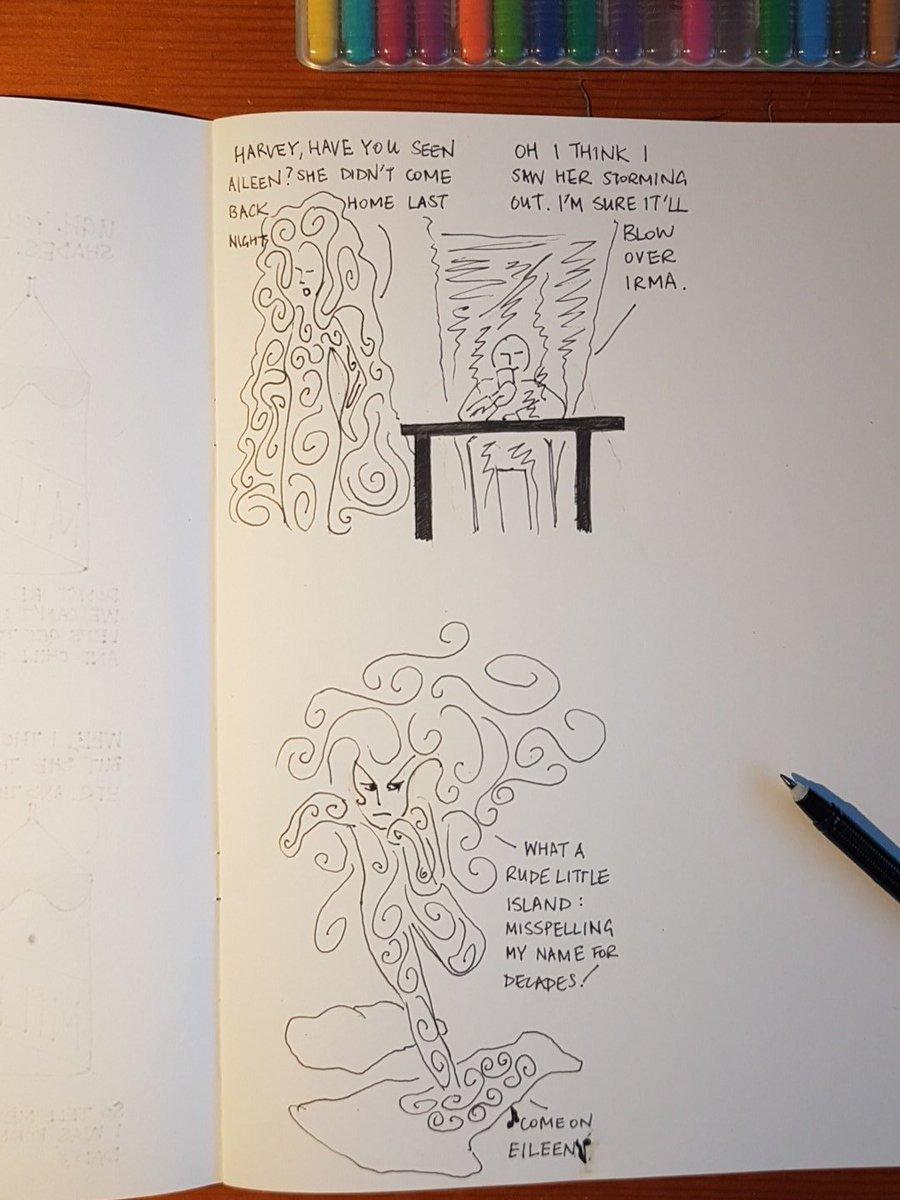 HARVEY, HAVE YOU SEEN
AILEEN? SHE DIDN'T COME
BACK HOME LAST
NIGHT
OH I THINK I
SAW HER STORMING
OUT. I'M SURE IT'LL
BLOW
OVER
IRMA.
WHAT A
RUDE LITTLE
ISLAND:
MISSPELLING
MY NAME FOR
DECADES!
♪COME ON
EILEEN♪